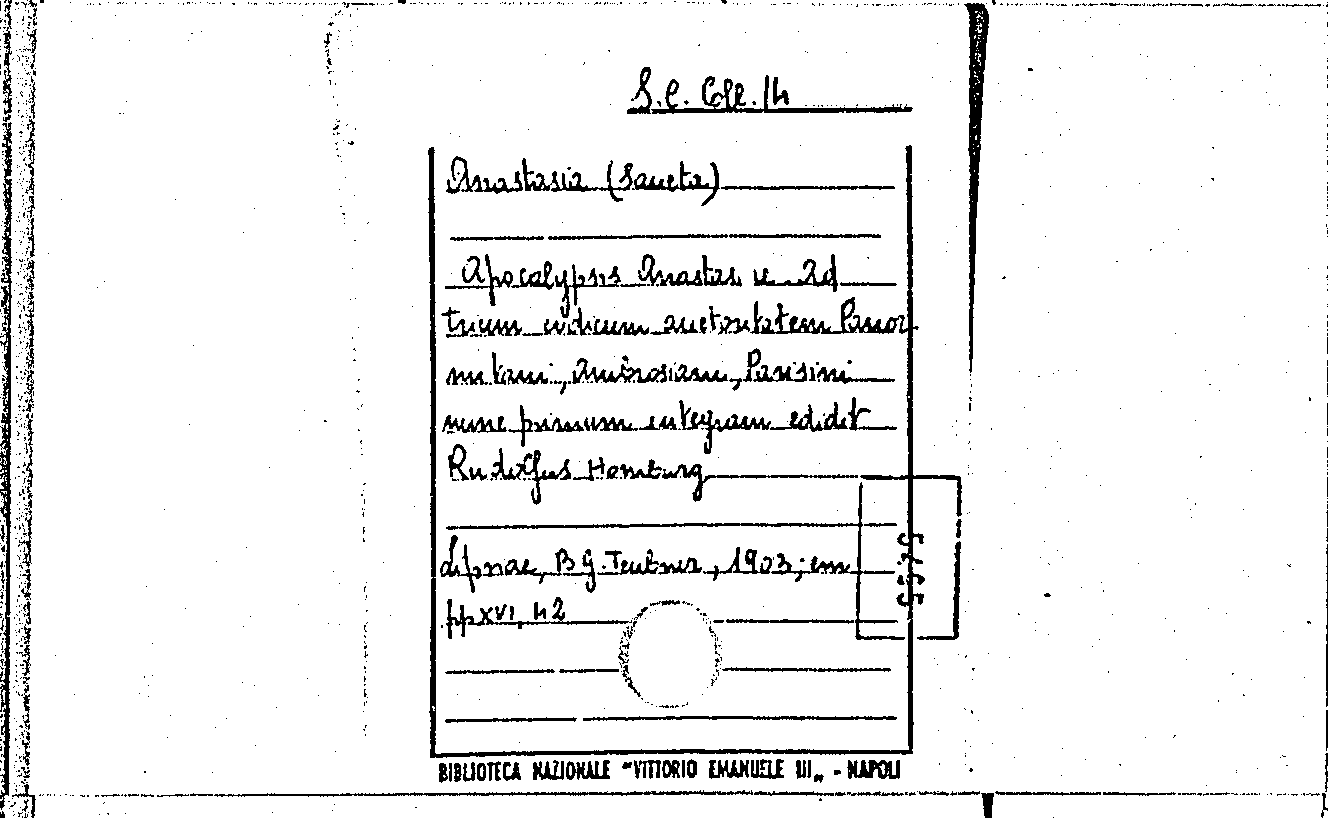 S.C. Coll. 14
Anastasia (Sancta)
Apocalypsis Anastasiae. Ad
trium codicum auctoritatem Panor
mitani, Ambrosiani, Parisini
nunc primum integram edidit
Rudolfus Homburg
Lipsiae, B G. Teubner, 1903, cm
pp XVI, 42
BIBLIOTECA NAZIONALE "VITTORIO EMANUELE III„ - NAPOLI